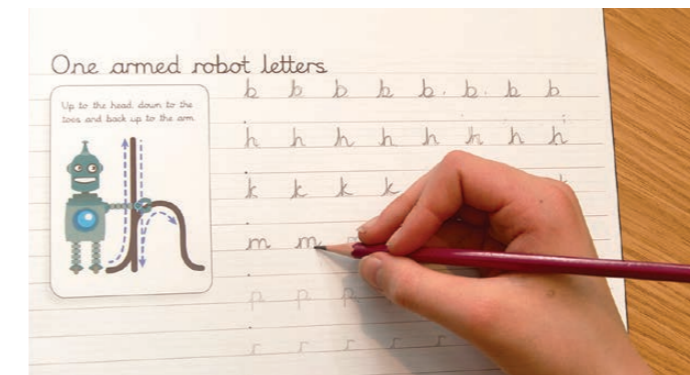 One armed robot letters
Up to the head, down to the
toes and back up to the arm.
b b b b b b b b
h h h h h h h h
k k k k
m m
p p p
r r r r r